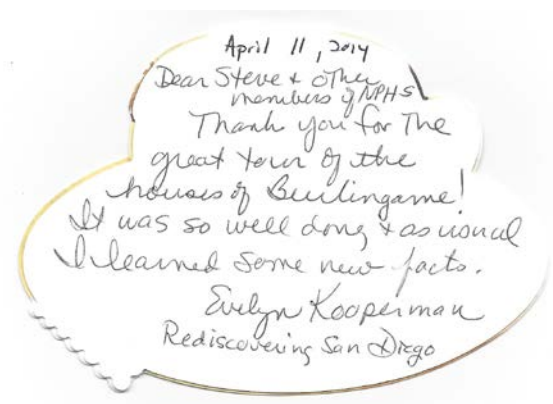 April 11, 2014
Dear Steve + other
members of NPHS
Thank you for the
great tour of the
houses of Burlingame!
It was so well done, + as usual
I learned some new facts.
Evelyn Kooperman
Rediscovering San Diego